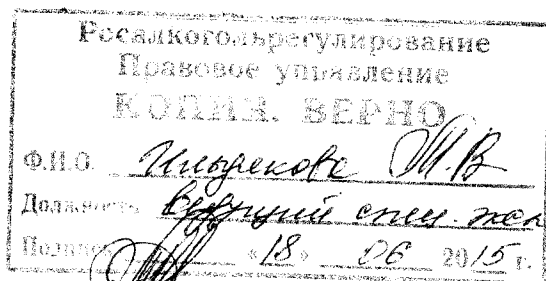 Росалкогольрегулирование
Правовое управление
КОПИЯ. ВЕРНО
Ф.И.О. Т.В
Должность ведущий спец.-экс
Подпись «18» 06 2015 г.